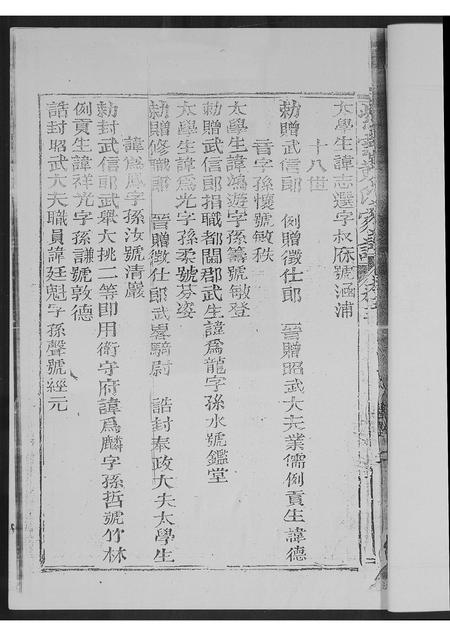 太學生諱志選字叔麻號涵浦
十八世
勅贈武信郎 例贈徵仕郎 晉贈昭武大夫業儒例貢生諱德
晉字孫懷號敏秩
太學生諱鴻遊字孫籌號敏登
勅贈武信郎捐職都閫郡武生諱為龍字孫水號鑑堂
太學生諱為光字孫柔號芬姿
勅贈修職郎 晉贈徵仕郎武畧騎尉 誥封奉政大夫太學生
諱為鳳字孫汝號清巖
勅封武信郎武舉大挑二等即用衛守府諱為麟字孫哲號竹林
例貢生諱祥光字孫謙號敦德
誥封昭武大夫職員諱廷魁字孫聲號經元